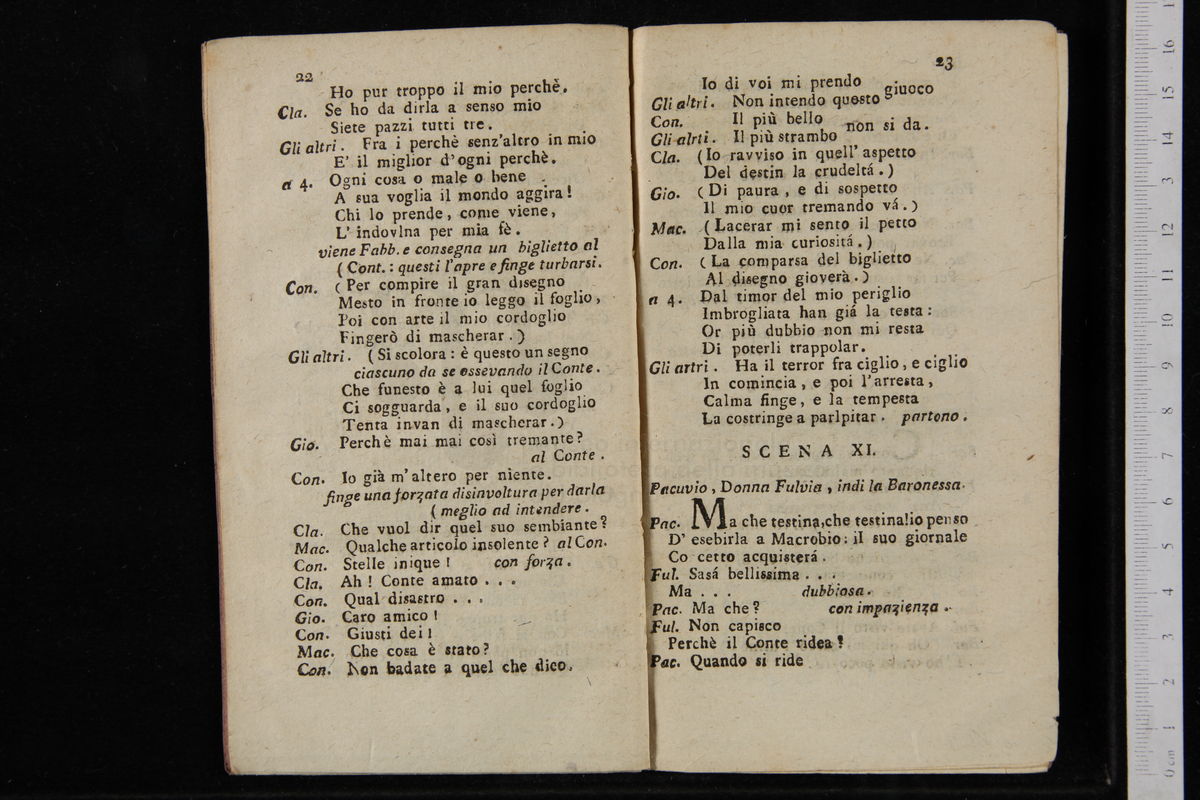 22
Ho pur troppo il mio perchè.
Cla. Se ho da dirla a senso mio
Siete pazzi tutti tre.
Gli altri. Fra i perchè senz'altro in mio
E' il miglior d'ogni perchè.
a 4. Ogni cosa o male o bene
A sua voglia il mondo aggira!
Chi lo prende, come viene,
L' indovina per mia fè.
viene Fabb. e consegna un biglietto al
( Cont. : questi l'apre e finge turbarsi.
Con. ( Per compire il gran disegno
Mesto in fronte io leggo il foglio,
Poi con arte il mio cordoglio
Fingerò di mascherar. )
Gli altri. ( Si scolora : è questo un segno
ciascuno da se ossevando il Conte.
Che funesto è a lui quel foglio
Ci sogguarda, e il suo cordoglio
Tenta invan di mascherar. )
Gio. Perchè mai mai così tremante?
al Conte.
Con. Io già m'altero per niente.
finge una forzata disinvoltura per darla
( meglio ad intendere.
Cla. Che vuol dir quel suo sembiante?
Mac. Qualche articolo insolente? al Con.
Con. Stelle inique! con forza.
Cla. Ah! Conte amato . . .
Con. Qual disastro . . .
Gio. Caro amico!
Con. Giusti dei!
Mac. Che cosa è stato?
Con. Non badate a quel che dico.
23
Io di voi mi prendo giuoco
Gli altri. Non intendo questo
Con. Il più bello non si da.
Gli alrti. Il più strambo
Cla. (Io ravviso in quell' aspetto
Del destin la crudeltá.)
Gio. ( Di paura, e di sospetto
Il mio cuor tremando vá.)
Mac. ( Lacerar mi sento il petto
Dalla mia curiositá.)
Con. ( La comparsa del biglietto
Al disegno gioverà.)
a 4. Dal timor del mio periglio
Imbrogliata han giá la testa:
Or più dubbio non mi resta
Di poterli trappolar.
Gli artri. Ha il terror fra ciglio, e ciglio
In comincia, e poi l'arresta,
Calma finge, e la tempesta
La costringe a parlpitar. partono.
SCENA XI.
Pacuvio, Donna Fulvia, indi la Baronessa.
Pac. Ma che testina, che testina! io penso
D' esebirla a Macrobio: il suo giornale
Co cetto acquisterá.
Ful. Sasá bellissima . . .
Ma . . . dubbiosa.
Pac. Ma che? con impazienza.
Ful. Non capisco
Perchè il Conte ridea?
Pac. Quando si ride